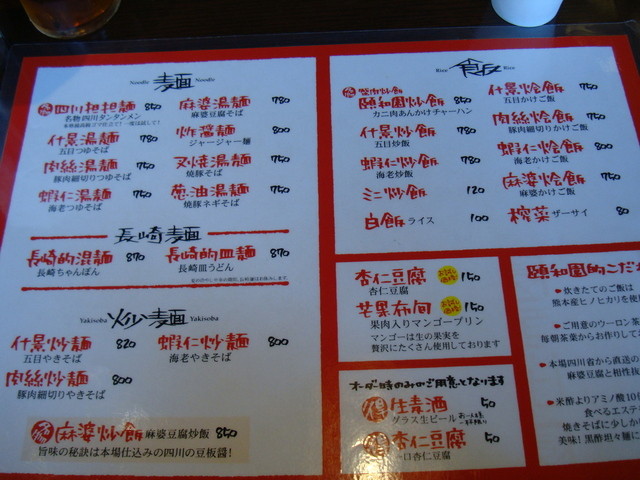 Noodle 麺 Noodle
四川担担麺 850
名物四川タンタンメン
麻婆湯麺 780
麻婆豆腐そば
什景湯麺 780
五目つゆそば
炸醤麺 800
ジャージャー麺
肉絲湯麺 750
豚肉細切りつゆそば
叉焼湯麺 750
焼豚そば
蝦仁湯麺 750
海老つゆそば
葱油湯麺 750
焼豚ネギそば
長崎麺
長崎的混麺 870
長崎ちゃんぽん
長崎的皿麺 870
長崎皿うどん
Yakisoba 炒麺 Yakisoba
什景炒麺 820
五目やきそば
蝦仁炒麺 800
海老やきそば
肉絲炒麺 800
豚肉細切りやきそば
麻婆炒飯 麻婆豆腐炒飯 850
旨味の秘訣は本場仕込みの四川の豆板醤!
Rice 飯 Rice
蟹肉炒飯
頤和園炒飯 850
カニ肉あんかけチャーハン
什景烩飯 750
五目かけご飯
什景炒飯 780
五目炒飯
肉絲烩飯 750
豚肉細切りかけご飯
蝦仁炒飯 750
海老炒飯
蝦仁烩飯 800
海老かけご飯
ミニ炒飯 120
麻婆烩飯 750
麻婆かけご飯
白飯 ライス 100
榨菜 ザーサイ 80
杏仁豆腐 150
杏仁豆腐
芒果布甸 150
果肉入りマンゴープリン
マンゴーは生の果実を
贅沢にたくさん使用しております
オーダー時のみのご用意となります
得 生麦酒 50
グラス生ビール
得 杏仁豆腐 50
一口杏仁豆腐
頤和園的こだ
・炊きたてのご飯は
熊本産ヒノヒカリを使
・ご用意のウーロン茶
毎朝茶葉からお作りして
・本場四川省から直送の
麻婆豆腐と相性抜
・米酢よりアミノ酸10
食べるエステ
焼きそばに少しか
美味!黒酢坦々麺